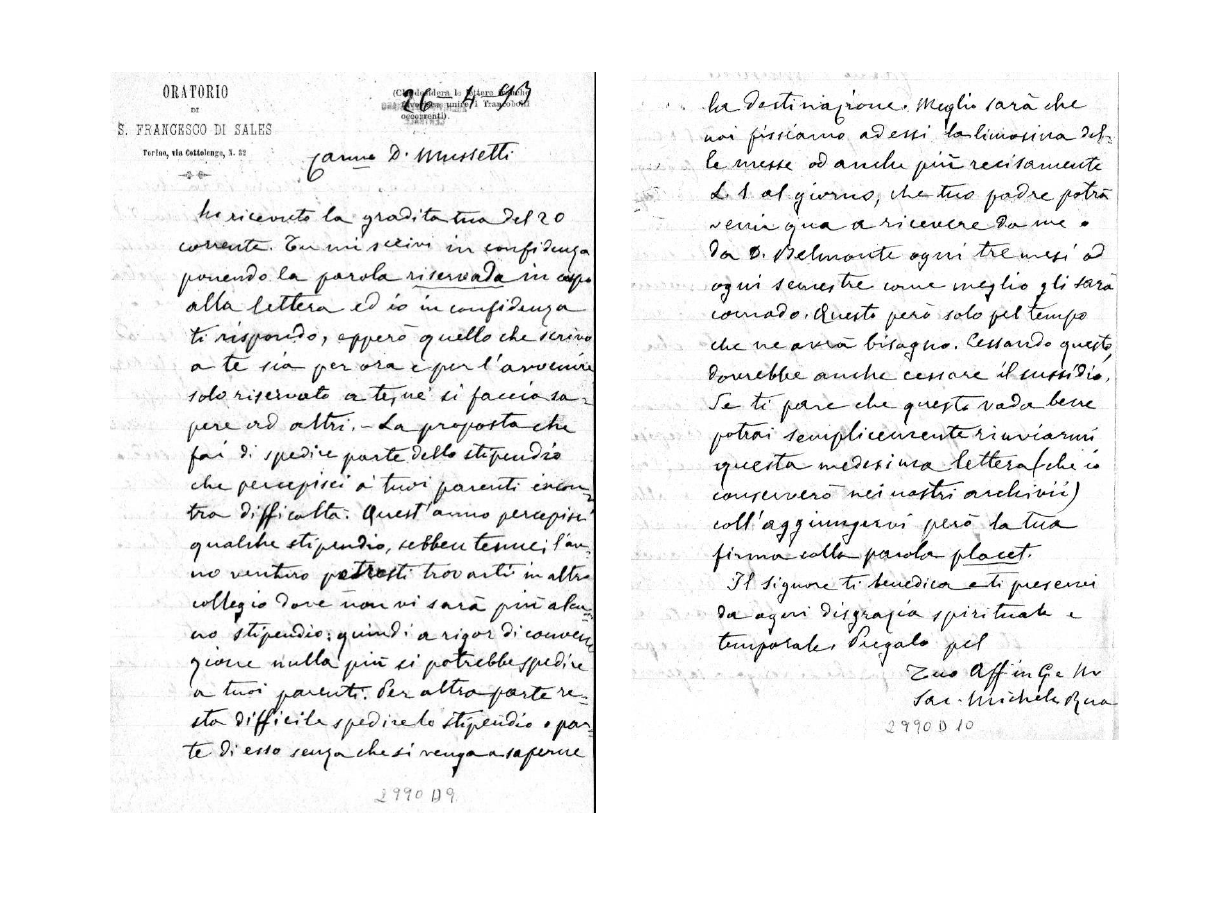 ORATORIO
DI
S. FRANCESCO DI SALES
Torino, via Cottolengo, N. 32
26 4 93
occorrenti).
Car.mo D. Mussetti
ho ricevuto la gradita tua del 20
corrente. Tu mi scrivi in confidenza
ponendo la parola riservada in capo
alla lettera ed io in confidenza
ti rispondo, epperò quello che scrivo
a te sia per ora e per l'avvenire
solo riservato a te, nè si faccia sa-
pere ad altri. - La proposta che
fai di spedire parte dello stipendio
che percepisci a' tuoi parenti incon-
tra difficoltà. Quest'anno percepisci
qualche stipendio, sebben tenue; l'an-
no venturo potresti trovarti in altro
collegio dove non vi sarà più alcu-
no stipendio; quindi a rigor di conven-
zione nulla più si potrebbe spedire
a tuoi parenti. Per altra parte re-
sta difficile spedire lo stipendio o par-
te di esso senza che si venga a saperne
2990 D 9
la destinazione. Meglio sarà che
noi fissiamo ad essi la limosina del-
le messe od anche più recisamente
L. 1 al giorno, che tuo padre potrà
venir qua a ricevere da me o
da D. Belmonte ogni tre mesi od
ogni semestre come meglio gli sarà
comodo. Questo però solo pel tempo
che ne avrà bisogno. Cessando questo,
dovrebbe anche cessare il sussidio.
Se ti pare che questo vada bene
potrai semplicemente rinviarmi
questa medesima lettera (che io
conserverò nei nostri archivii)
coll'aggiungervi però la tua
firma colla parola placet.
Il Signore ti benedica e ti preservi
da ogni disgrazia spirituale e
temporale. Pregalo pel
Tuo Aff. in G. e M.
Sac. Michele Rua
2990 D 10